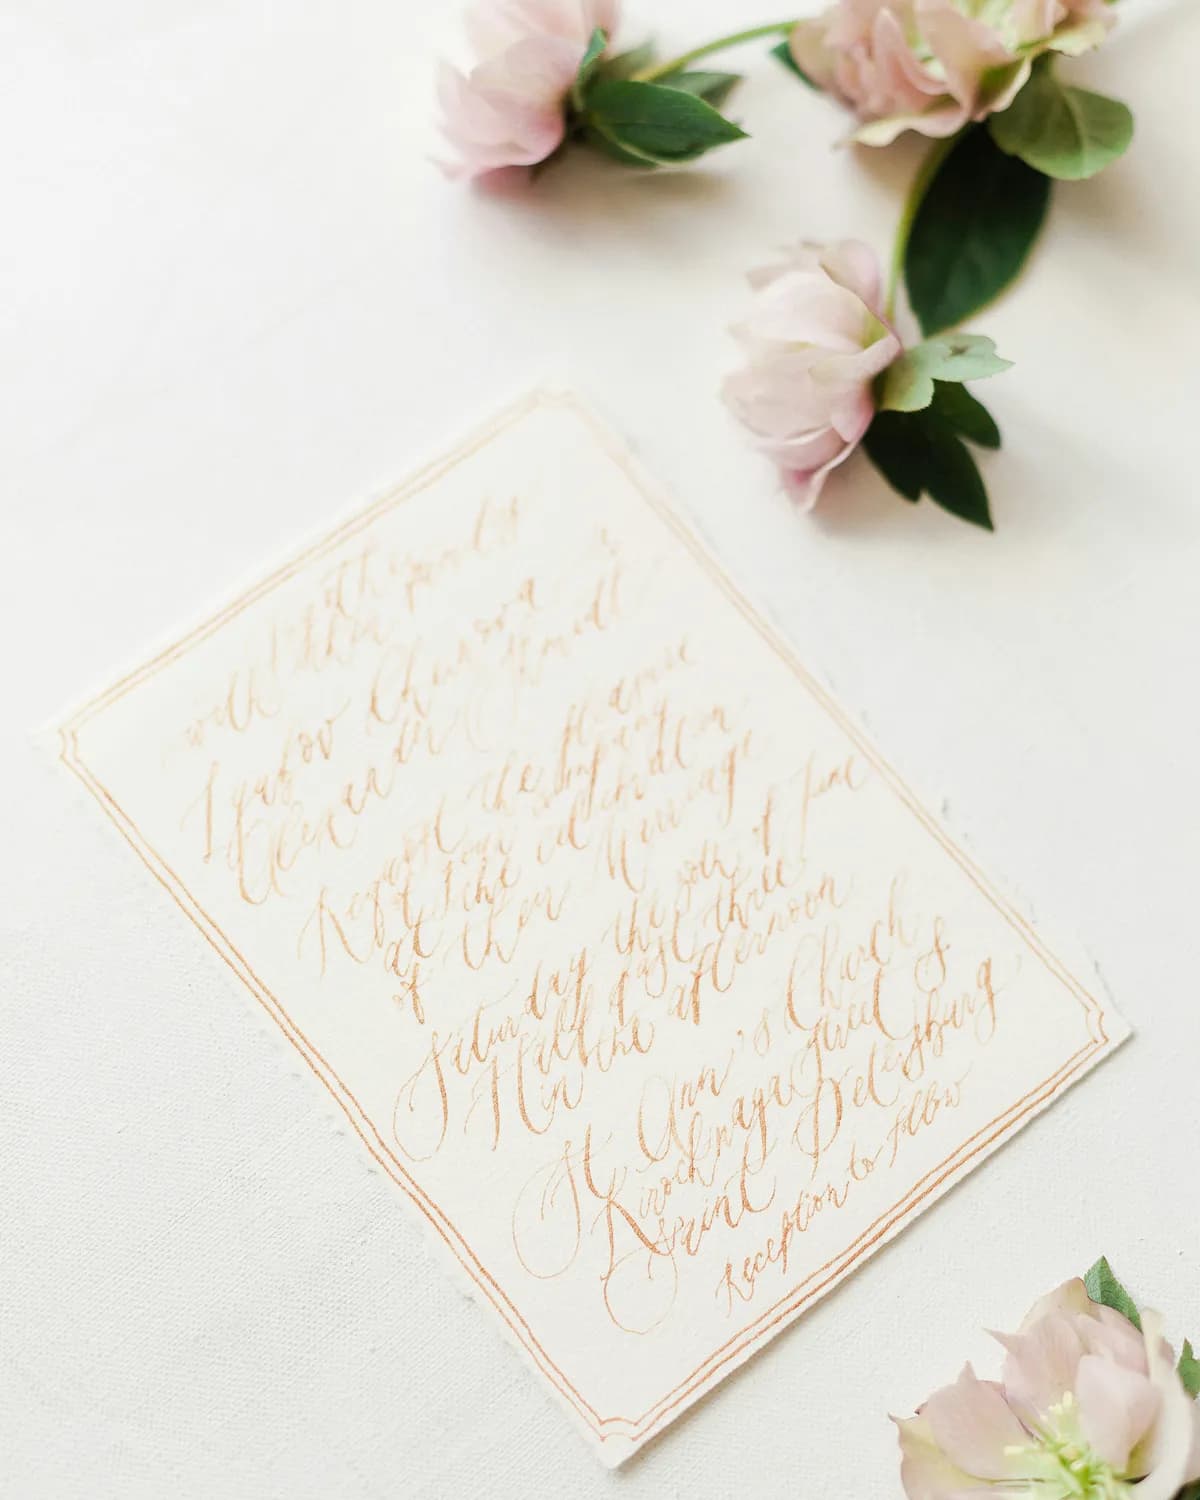 with their parents
Alexandr
Request the pleasure
of your company
at the celebration
of their Marriage
Saturday the of June
Half past three
in the afternoon
St. Ann's Church
Kirochnaya Street 8
Saint Petersburg
Reception to follow